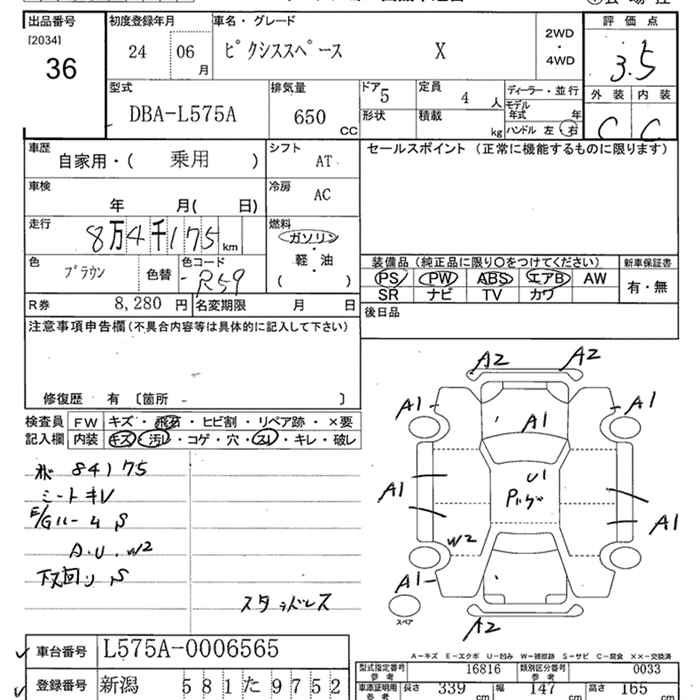 出品番号 初度登録年月 車名・グレード 2WD・4WD 評価点
[2034]
36 24 06月 ピクシススペース X 3.5
型式 排気量 ドア 定員 ディーラー・並行 外装 内装
DBA-L575A 650CC 5 4人 モデル年式 年 C C
形状 積載 kg ハンドル 左 右
車歴 シフト セールスポイント (正常に機能するものに限ります)
自家用・( 乗用 ) AT
車検 冷房
年 月( 日) AC
走行 燃料
8万4千175km ガソリン
軽・油
( )
色 色替 色コード 装備品 (純正品に限り○をつけてください) 新車保証書
ブラウン R59 PS PW ABS エアB AW 有・無
SR ナビ TV カワ
R券 8,280円 名変期限 月 日 後日品
注意事項申告欄(不具合内容等は具体的に記入して下さい)
修復歴 有 〔箇所 - 〕
検査員 FW キズ・飛石・ヒビ割・リペア跡・×要
記入欄 内装 キズ・汚レ・コゲ・穴・スレ・キレ・破レ
84175
シートキレ
E/Gルーム S
A.U. W2
下回り S
スタッドレス
A2 A2
A1 A1
A1
U1
A1 A1
W2
A1 A1
A2
スペア
A-キズ E-エクボ U-凹み W-補修跡 S-サビ C-腐食 ××-交換済
車台番号 L575A-0006565
型式指定番号 参考 16816 類別区分番号 参考 0033
登録番号 新潟 581た9752
車庫証明用 参考 長さ 339cm 幅 147cm 高さ 165cm